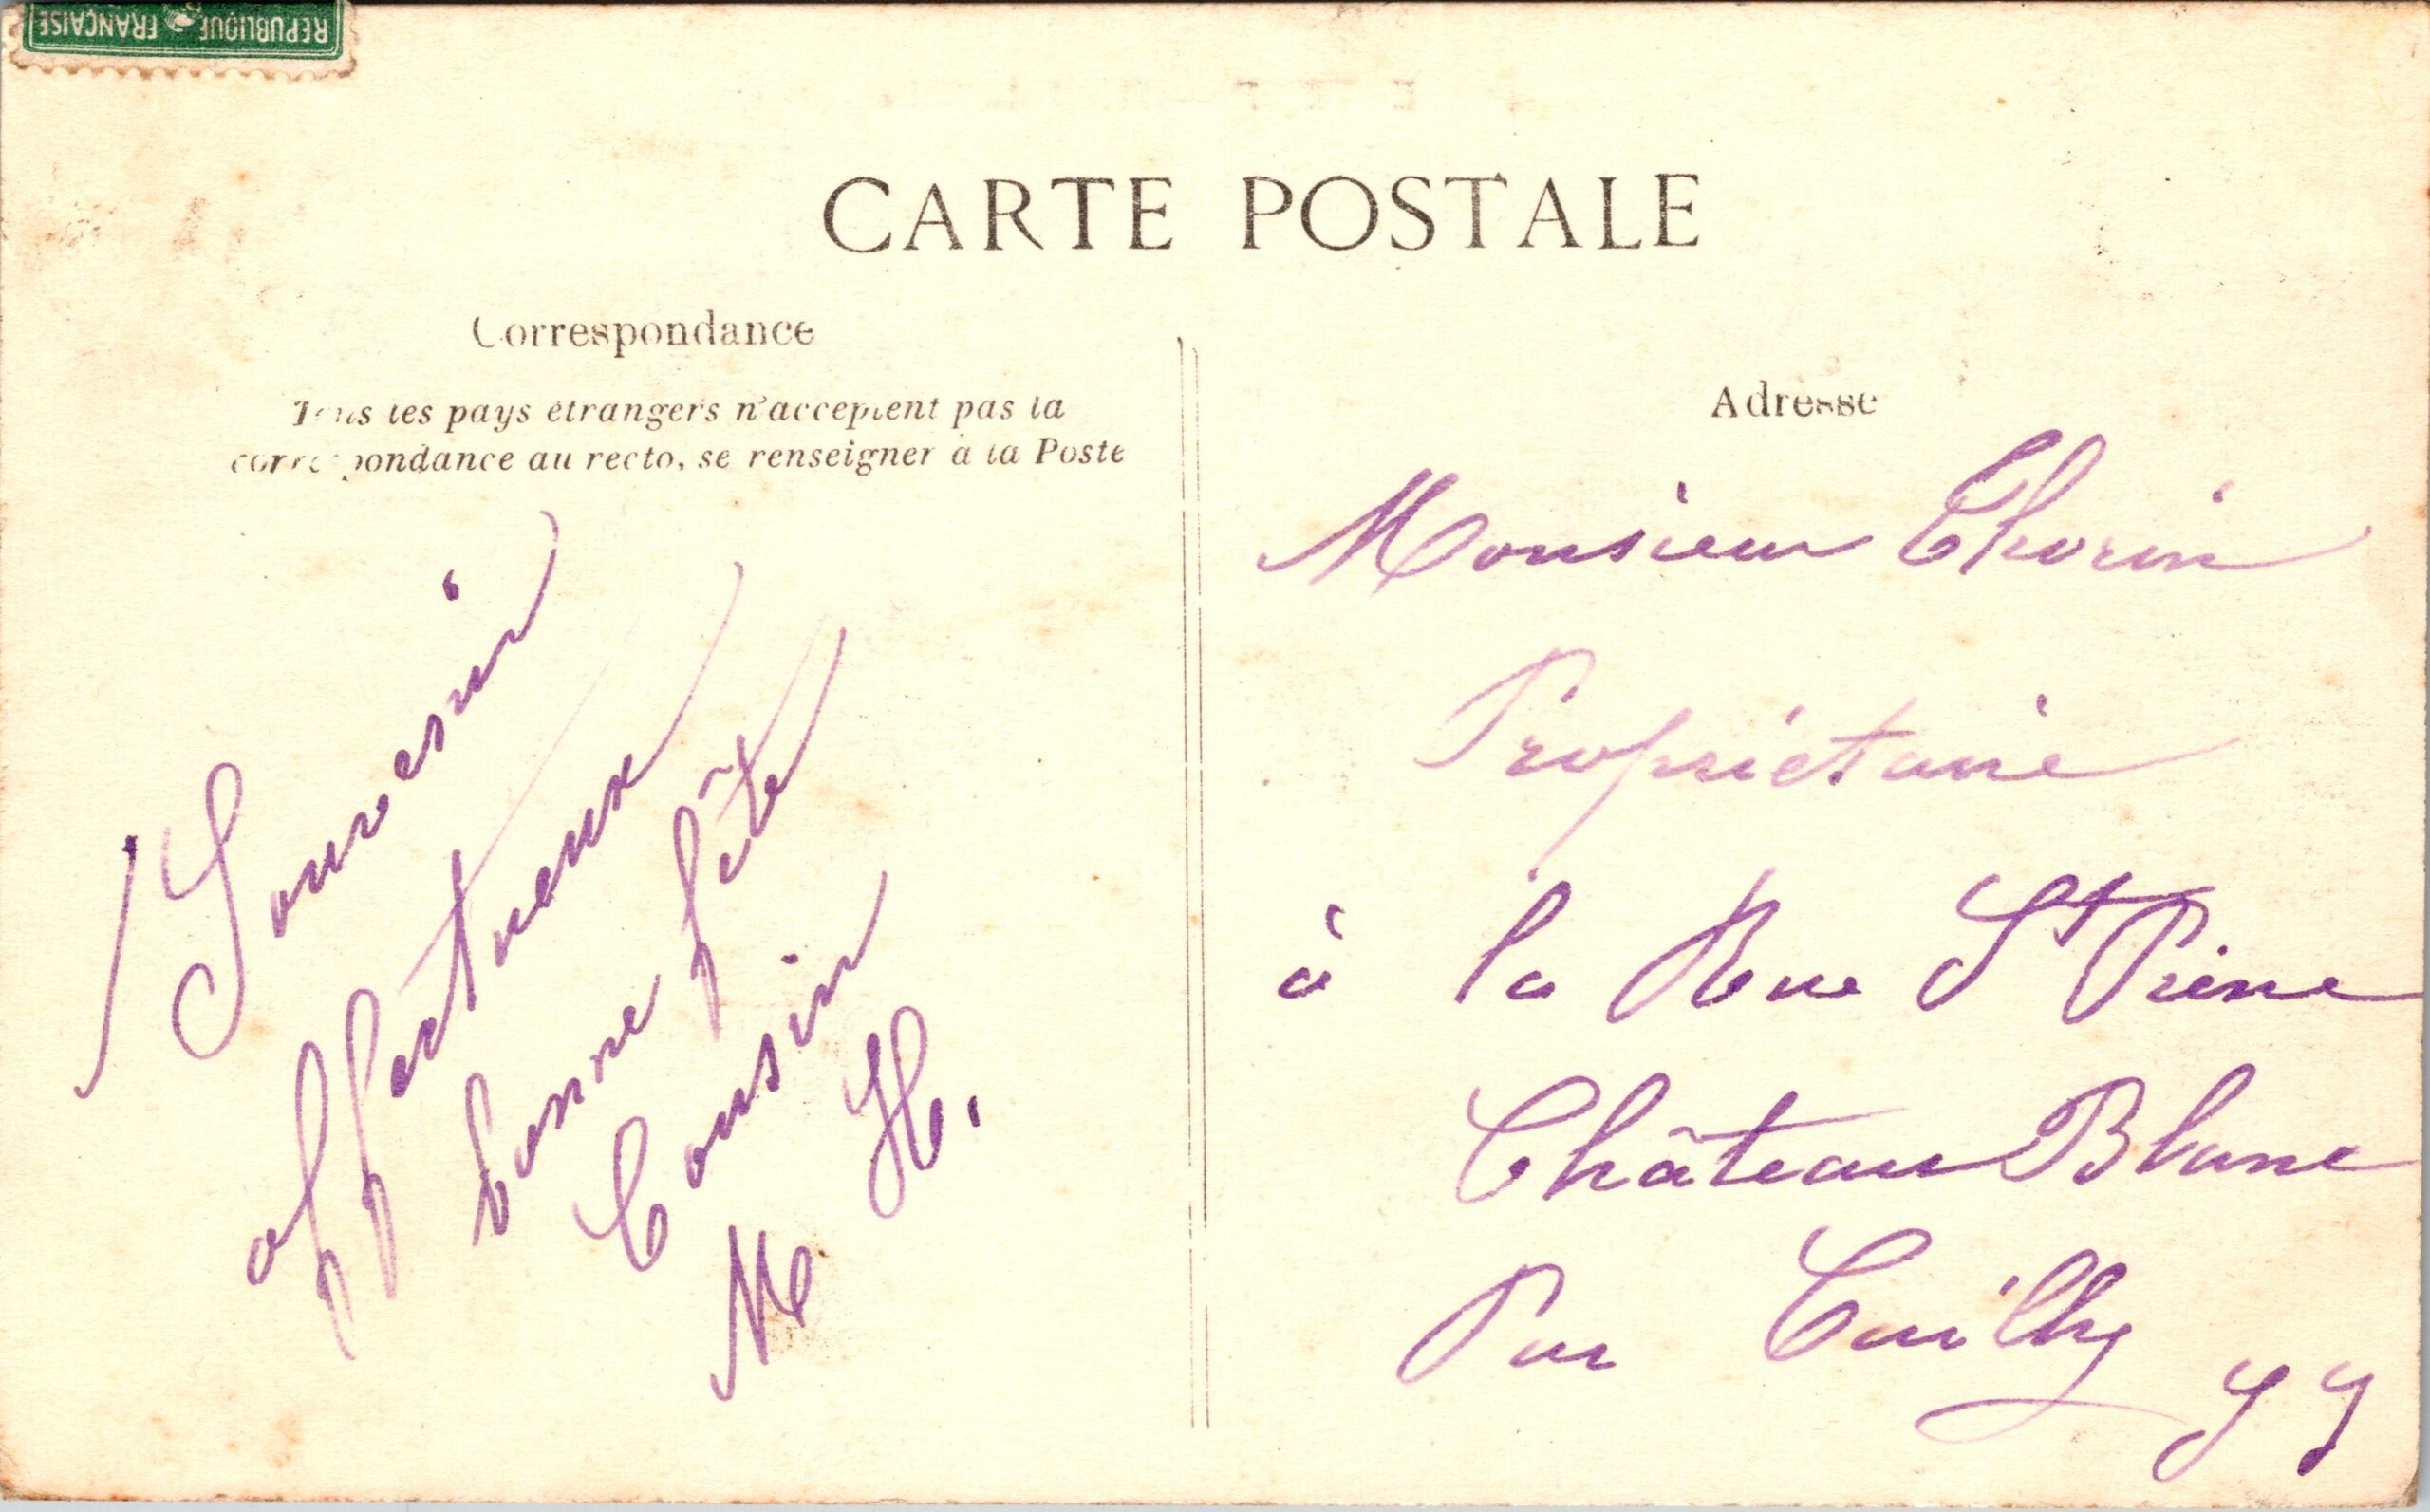 REPUBLIQUE FRANÇAISE
CARTE POSTALE
Correspondance
Tous les pays étrangers n'acceptent pas la
correspondance au recto, se renseigner à la Poste
Souvenir
affectueux
bonne fête
Cousin
M H.
Adresse
Monsieur Thorin
Propriétaire
à la Rue St Pierre
Château Blanc
Par Cuilly